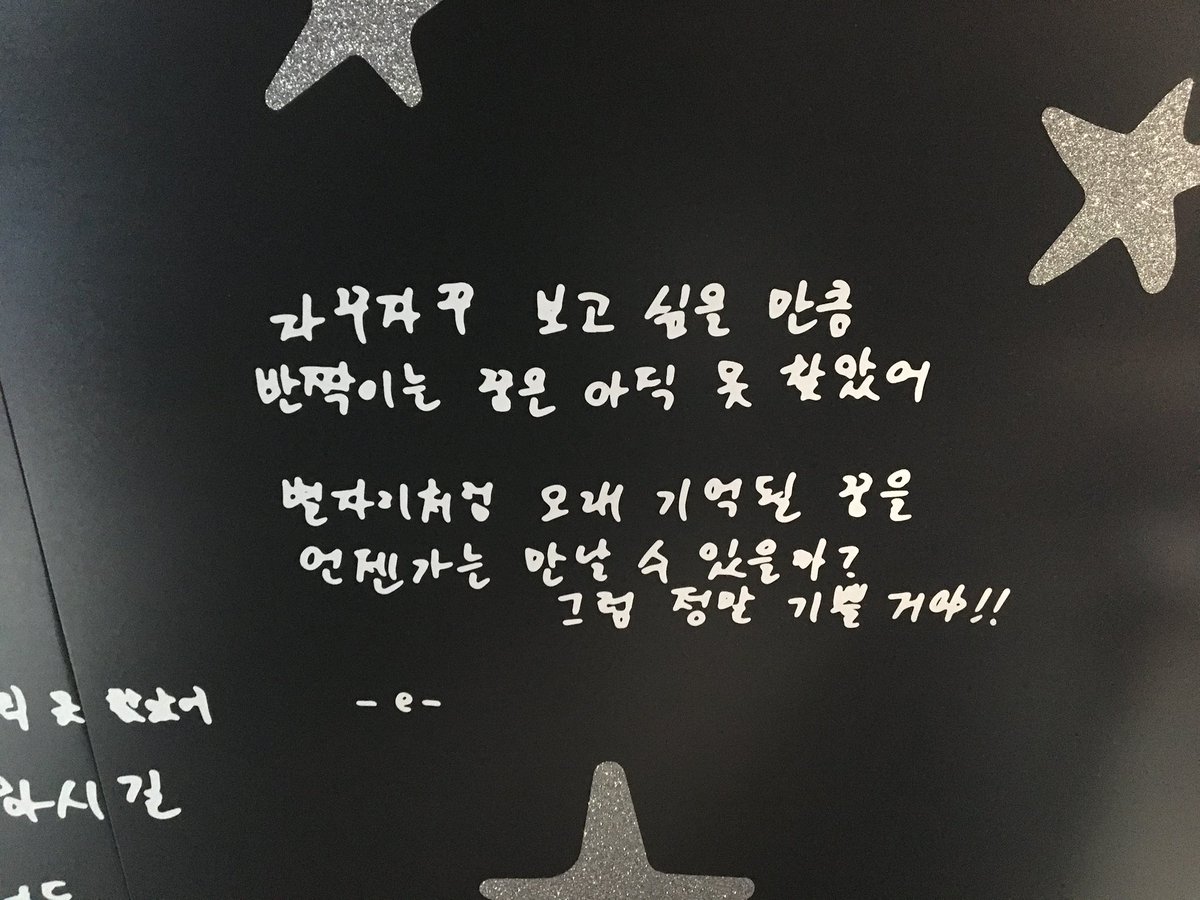 자꾸자꾸 보고 싶을 만큼
반짝이는 꿈은 아직 못 찾았어
별자리처럼 오래 기억될 꿈을
언젠가는 만날 수 있을까?
그럼 정말 기쁠 거야!!
- e -
못 찾았어
시길